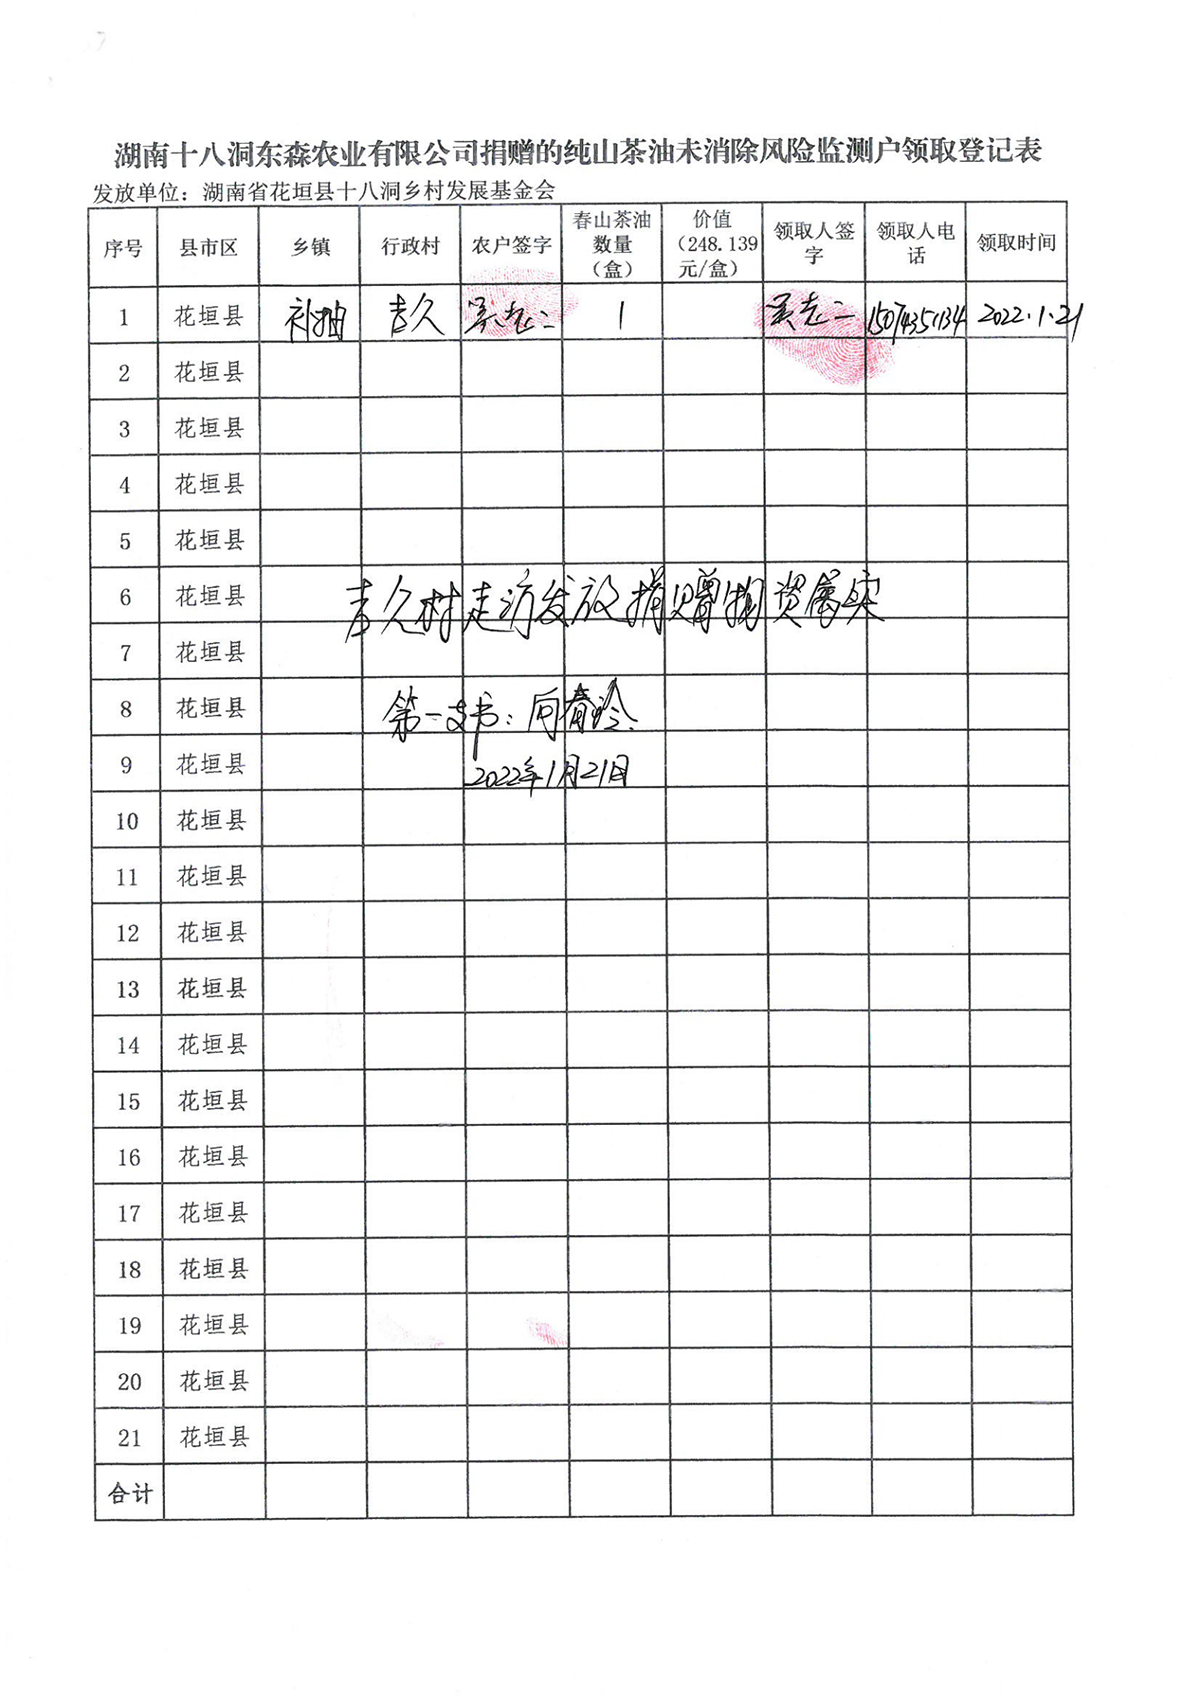 湖南十八洞东森农业有限公司捐赠的纯山茶油未消除风险监测户领取登记表
发放单位：湖南省花垣县十八洞乡村发展基金会
序号 县市区 乡镇 行政村 农户签字 春山茶油数量（盒） 价值（248.139元/盒） 领取人签字 领取人电话 领取时间
1 花垣县 补抽 吉久 吴志二 1 吴志二 15074351134 2022.1.21
2 花垣县
3 花垣县
4 花垣县
5 花垣县
6 花垣县 吉久村走访发放捐赠物资属实
7 花垣县
8 花垣县 第一支书：向春玲
9 花垣县 2022年1月21日
10 花垣县
11 花垣县
12 花垣县
13 花垣县
14 花垣县
15 花垣县
16 花垣县
17 花垣县
18 花垣县
19 花垣县
20 花垣县
21 花垣县
合计